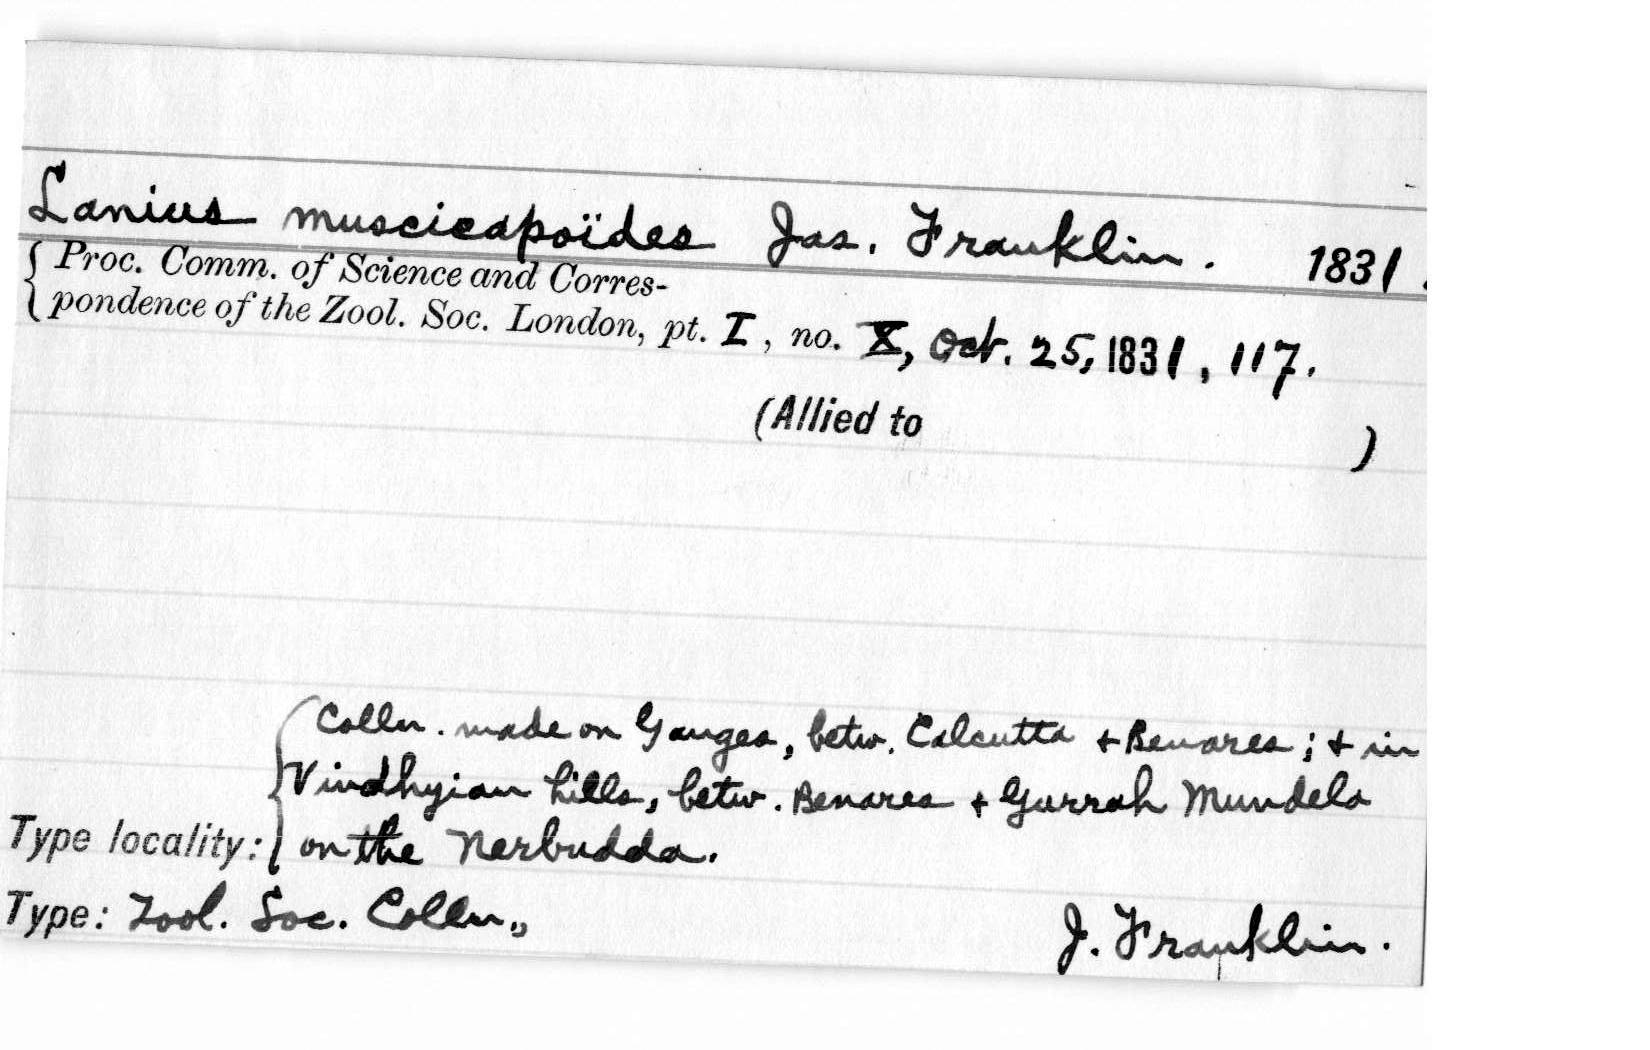 Lanius muscicapoïdes Jas. Franklin. 1831.
Proc. Comm. of Science and Corres-
pondence of the Zool. Soc. London, pt. I, no. X, Oct. 25, 1831, 117.
(Allied to )
Colln. made on Ganges, betw. Calcutta + Benares; + in
Vindhyian hills, betw. Benares + Gurrah Mundela
Type locality: on the Nerbudda.
Type: Zool. Soc. Colln., J. Franklin.